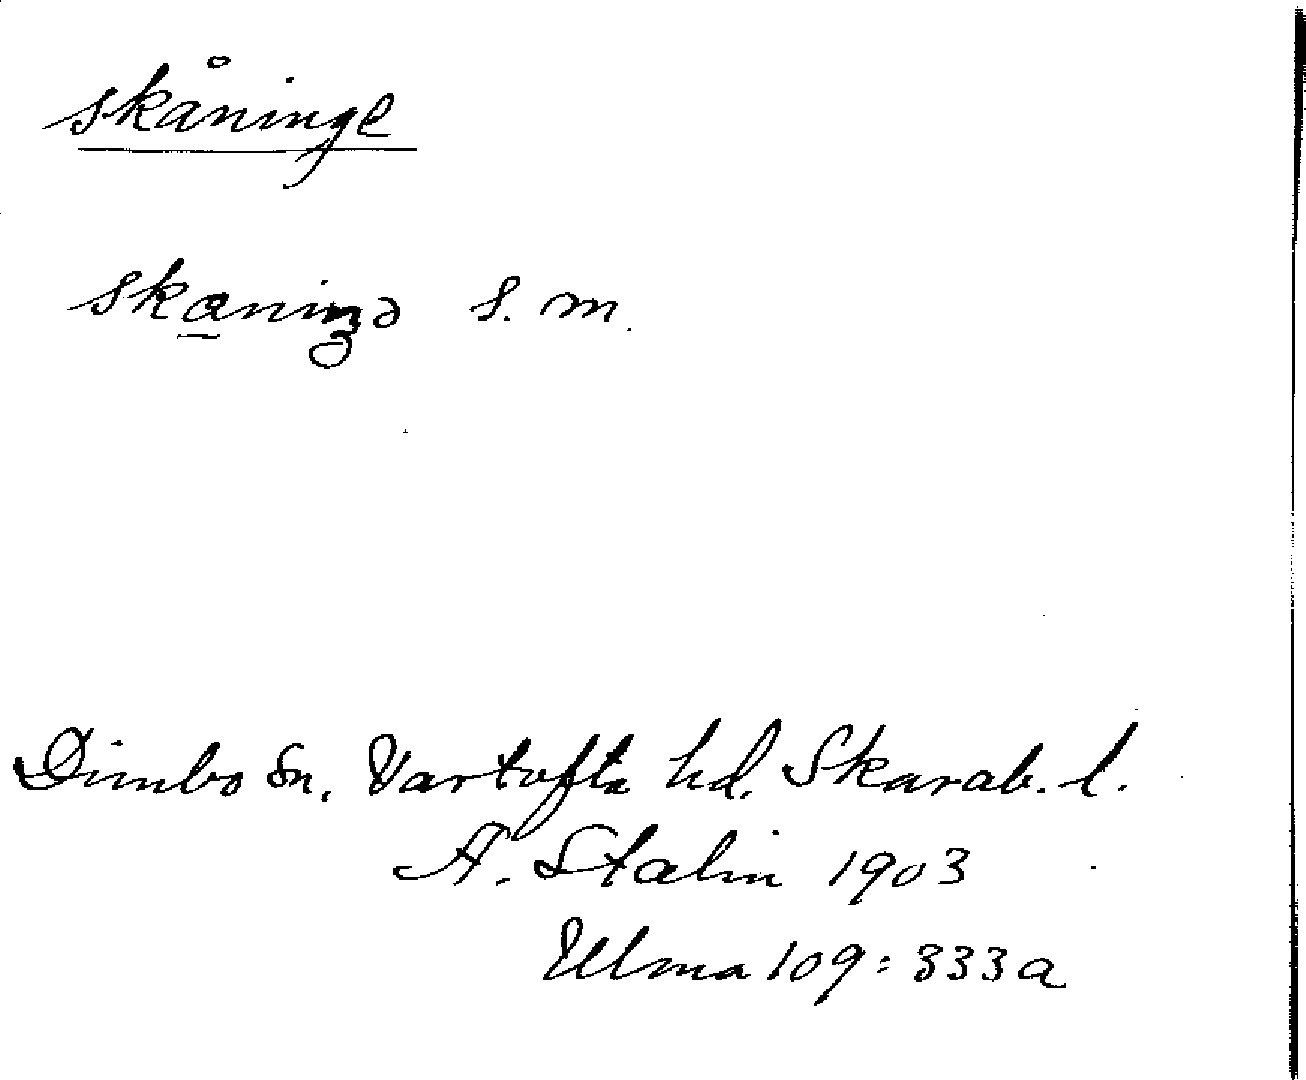 skåninge
skaninŋə s. m.
Dimbo sn. Vartofta hd. Skarab. l.
A. Stalin 1903
Ulma 109: 333a